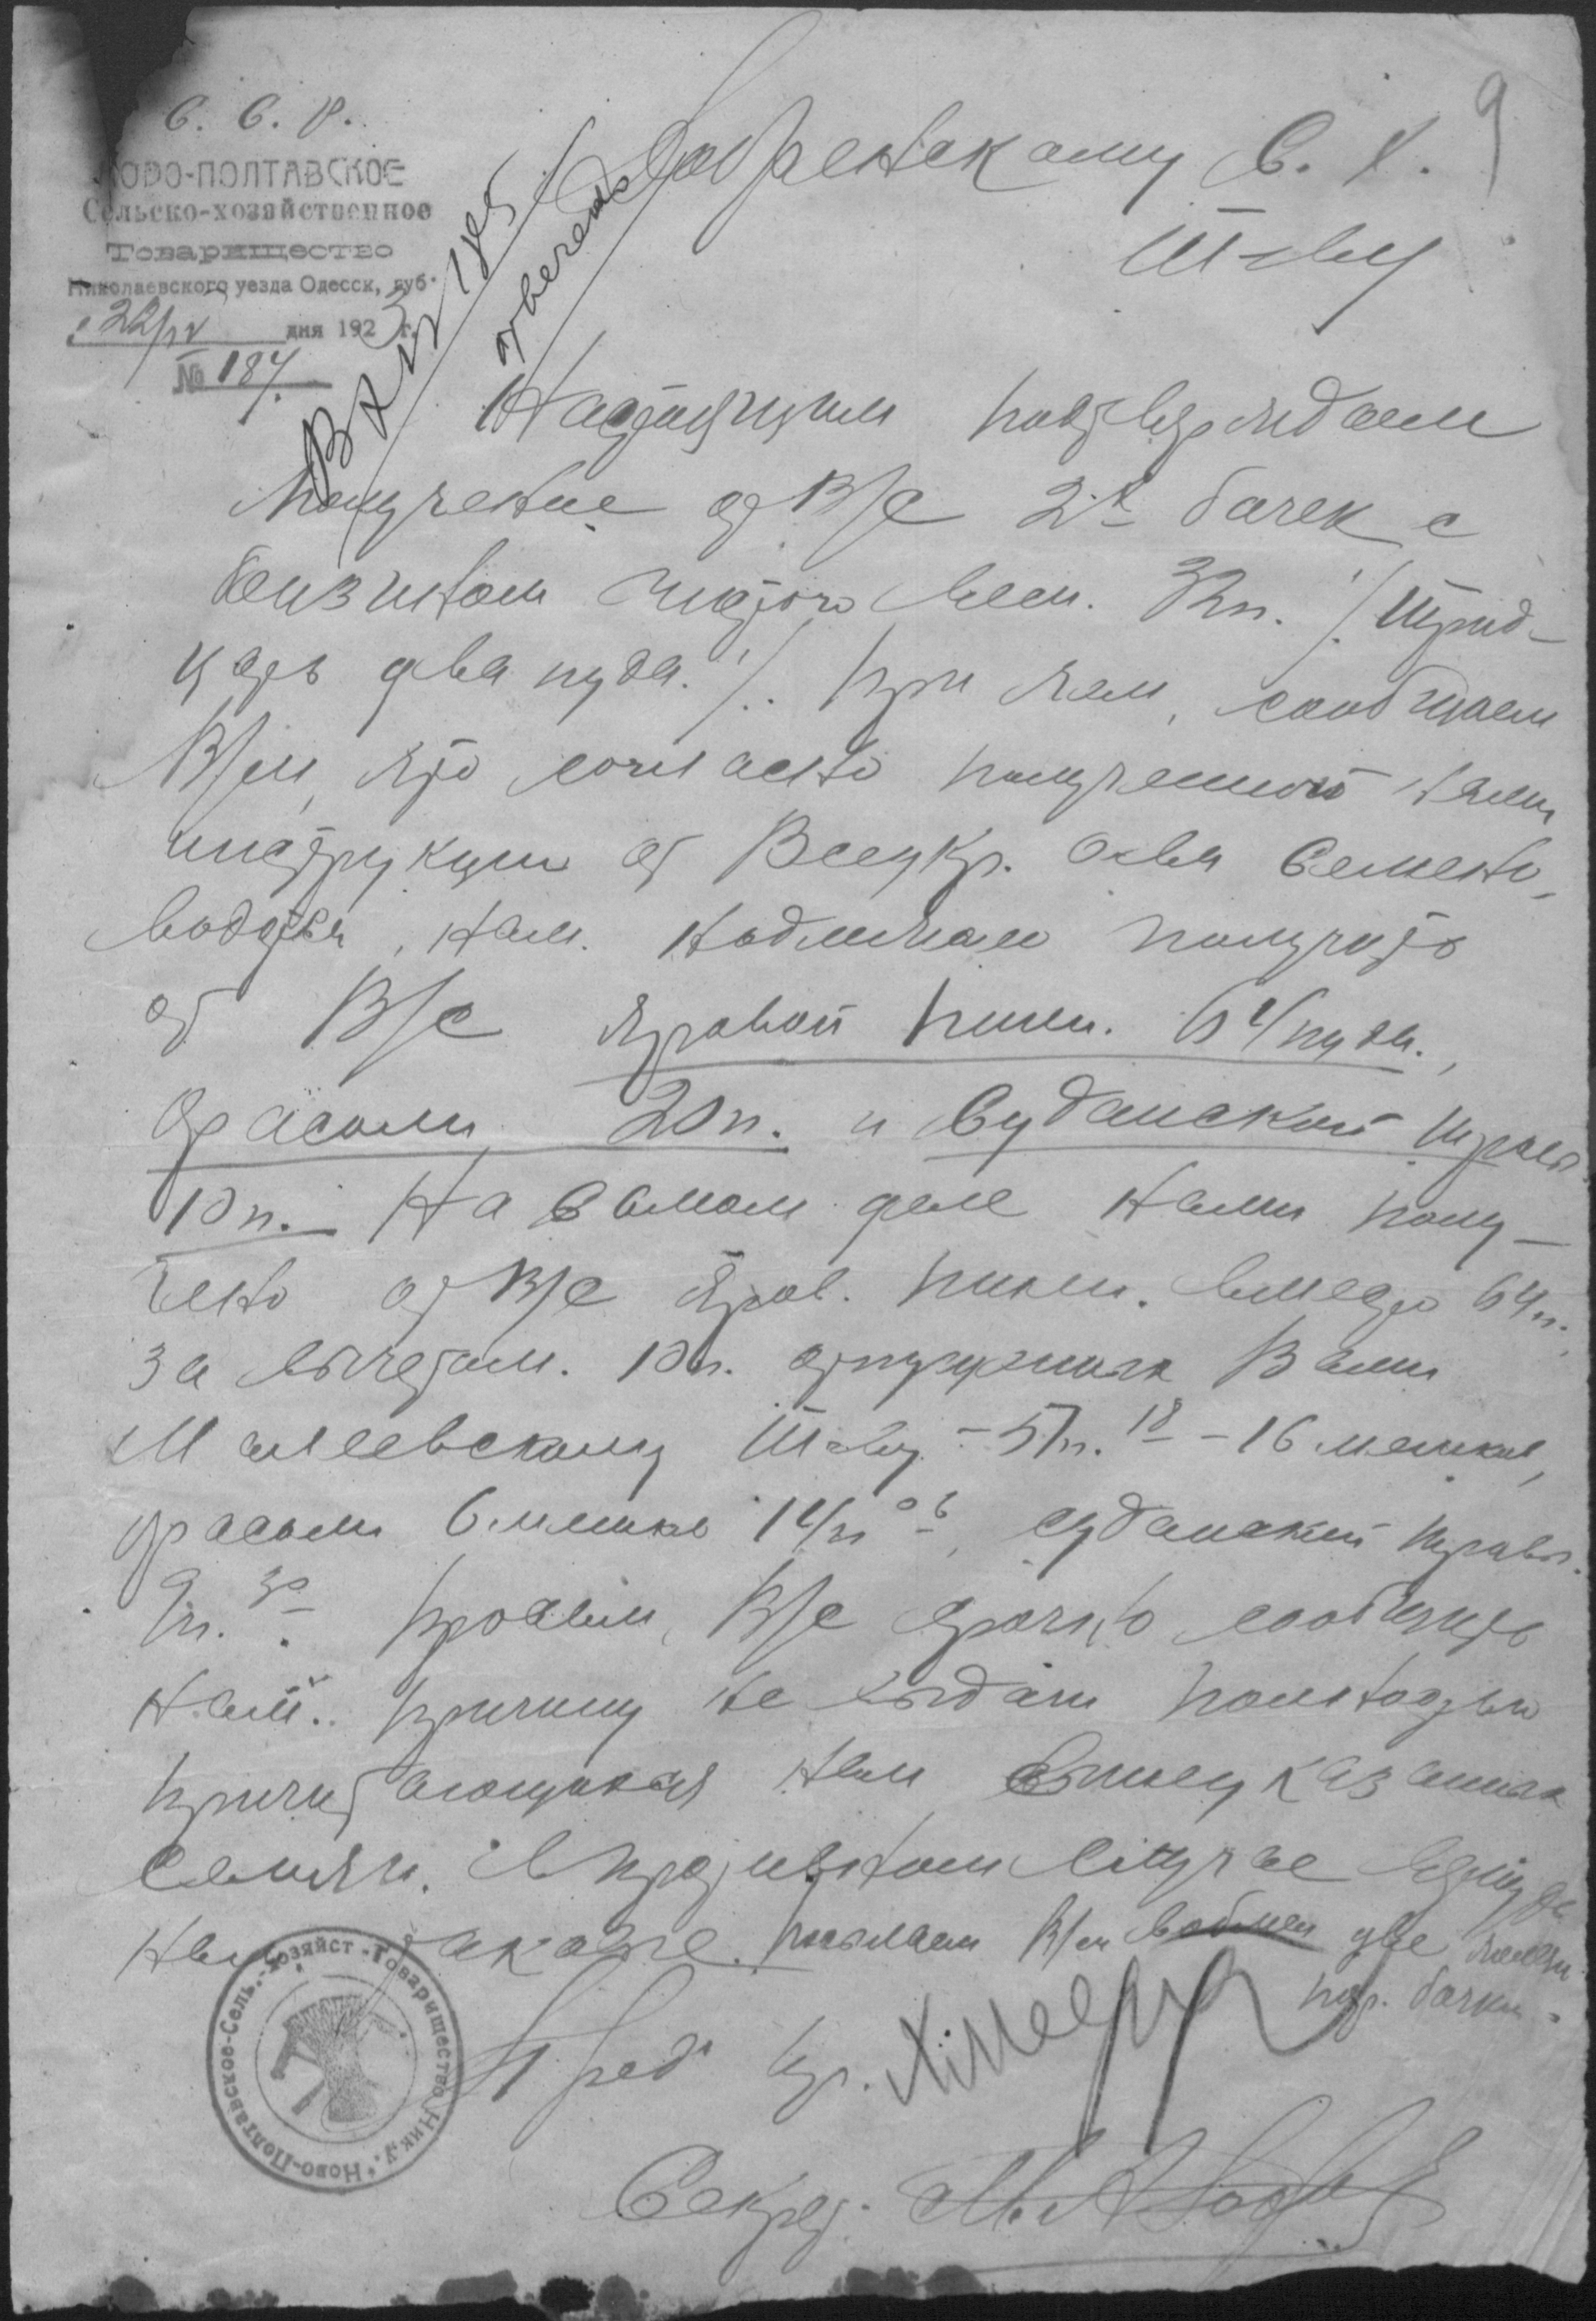 С. С. Р.
НОВО-ПОЛТАВСКОЕ
Сельско-хозяйственное
Товарищество
Николаевского уезда Одесск, губ.
22/IV дня 1923 г.
№ 187.
9
Добренскому С. Х.
Т-ву
Вх № 185
отвечено
Настоящим подтверждаем
получение от В/с 2х бочек с
бензином чистого весом. 32п. /. Трид-
цать два пуда. /. При чем, сообщаем
В/м, что согласно полученной нами
инструкции от Всеукр. О-ва Семено-
водства, нам. надлежало получить
от В/с яровой пшен. 64 пуда.,
фасоли 20п. и Суданской травы
10п. На самом деле нами полу-
чено от В/с яров. пшен. вместо 64п.
за вычетом. 10п. отпущенных Вами
Малеевскому Т-ву - 51п. 18 - 16 мешков,
фасоли 6 мешков 14п 06, суданской травы.
9п. 30. Просим, В/с срочно сообщить
нам.. причину не выдачи полностью
причитающихся нам вышеуказанных
семян. В противном случае
посылаем В/м две
бочки.
Пред
Секрет.
Ново-Полтавское-Сель.-Хозяйст-Товарищество Ник. у.